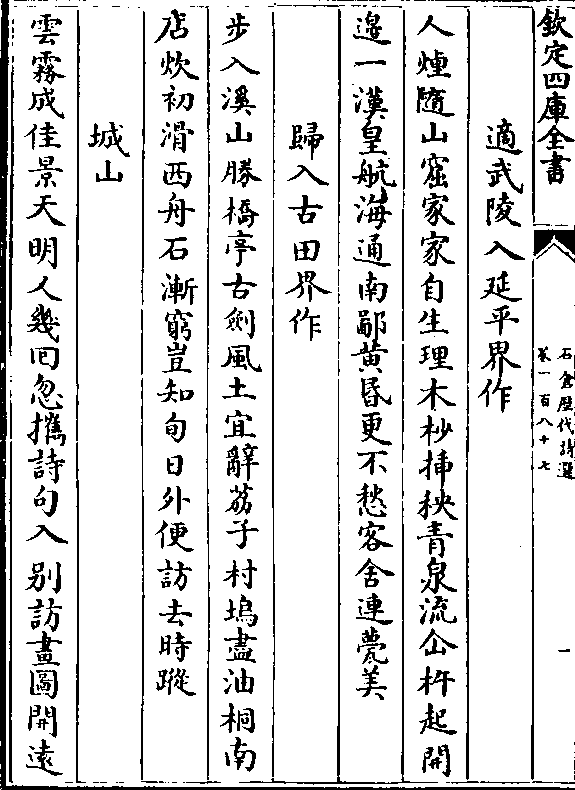 欽定四庫全書
石倉歷代詩選
卷一百八十七
一
適武陵入延平界作
人煙隨山窟家家自生理木杪挿秧青泉流仚杵起開
邉一漢皇航海通南鄙黄昏更不愁客舍連甍美
歸入古田界作
步入溪山勝橋亭古劍風土宜辭荔子村塢盡油桐南
店炊初滑西舟石漸窮豈知旬日外便訪去時蹤
城山
雲霧成佳景天明人幾囘忽攜詩句入别訪畫圖開遠